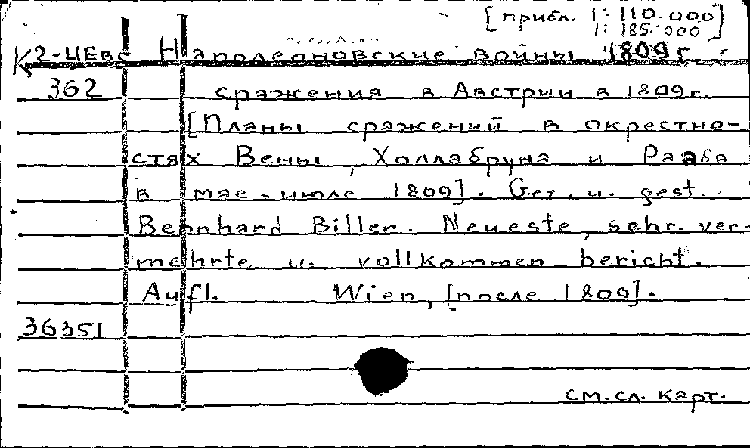 [прибл. 1:110.000]
1:185.000
К2-ЦЕВС Наполеоновские войны 1809 г. :
362 сражения в Австрии в 1809 г.
[Планы сражений в окрестно-
стях Вены, Холлабруна и Рааба
в мае-июле 1809]. Gez. u. gest.
Bernhard Biller. Neueste, sehr ver-
mehrte u. vollkommen bericht.
Aufl. Wien, [после 1809].
36351
см. сл. карт.